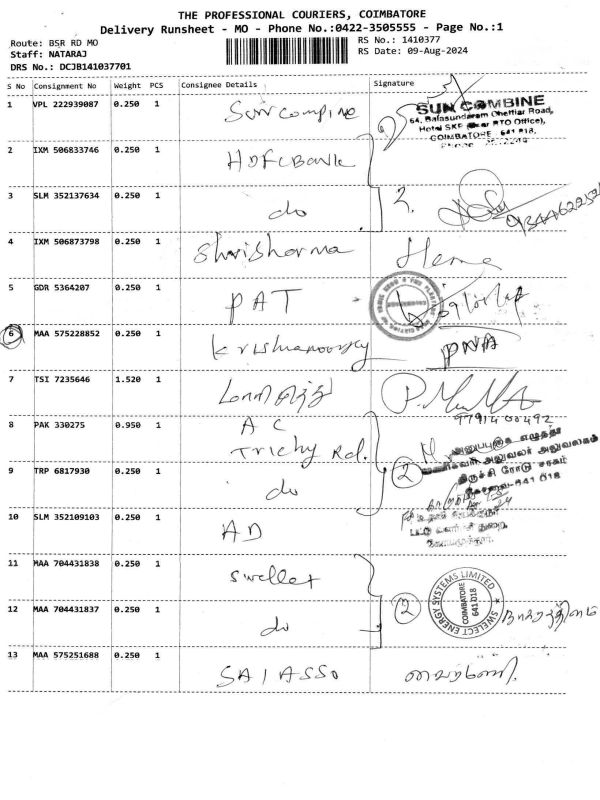 THE PROFESSIONAL COURIERS, COIMBATORE
Delivery Runsheet - MO - Phone No.:0422-3505555 - Page No.:1
Route: BSR RD MO
RS No.: 1410377
Staff: NATARAJ
RS Date: 09-Aug-2024
DRS No.: DCJB141037701
S No Consignment No Weight PCS Consignee Details Signature
1 VPL 222939087 0.250 1 Sun compine
SUN COMBINE
64, Balasundaram Chettiar Road,
Hotel SKF (Near RTO Office),
COIMBATORE - 641 018.
2 IXM 506833746 0.250 1 HDFC Bank
3 SLM 352137634 0.250 1 do 2.
4 IXM 506873798 0.250 1 Shrisharma Hema
5 GDR 5364207 0.250 1 PAT
6 MAA 575228852 0.250 1 PNA
7 TSI 7235646 1.520 1
9791400492
8 PAK 330275 0.950 1 A C
Trichy Rd.
அனுப்புகை எழுத்தர்
வணிகவரி அலுவலர் அலுவலகம்
திருச்சி ரோடு சரகம்
கோவை-641 018
9 TRP 6817930 0.250 1 do 2
10 SLM 352109103 0.250 1 AD
11 MAA 704431838 0.250 1 Swellet
SWELECT ENERGY SYSTEMS LIMITED
COIMBATORE
641 018
12 MAA 704431837 0.250 1 do 2
13 MAA 575251688 0.250 1 SAI ASSO